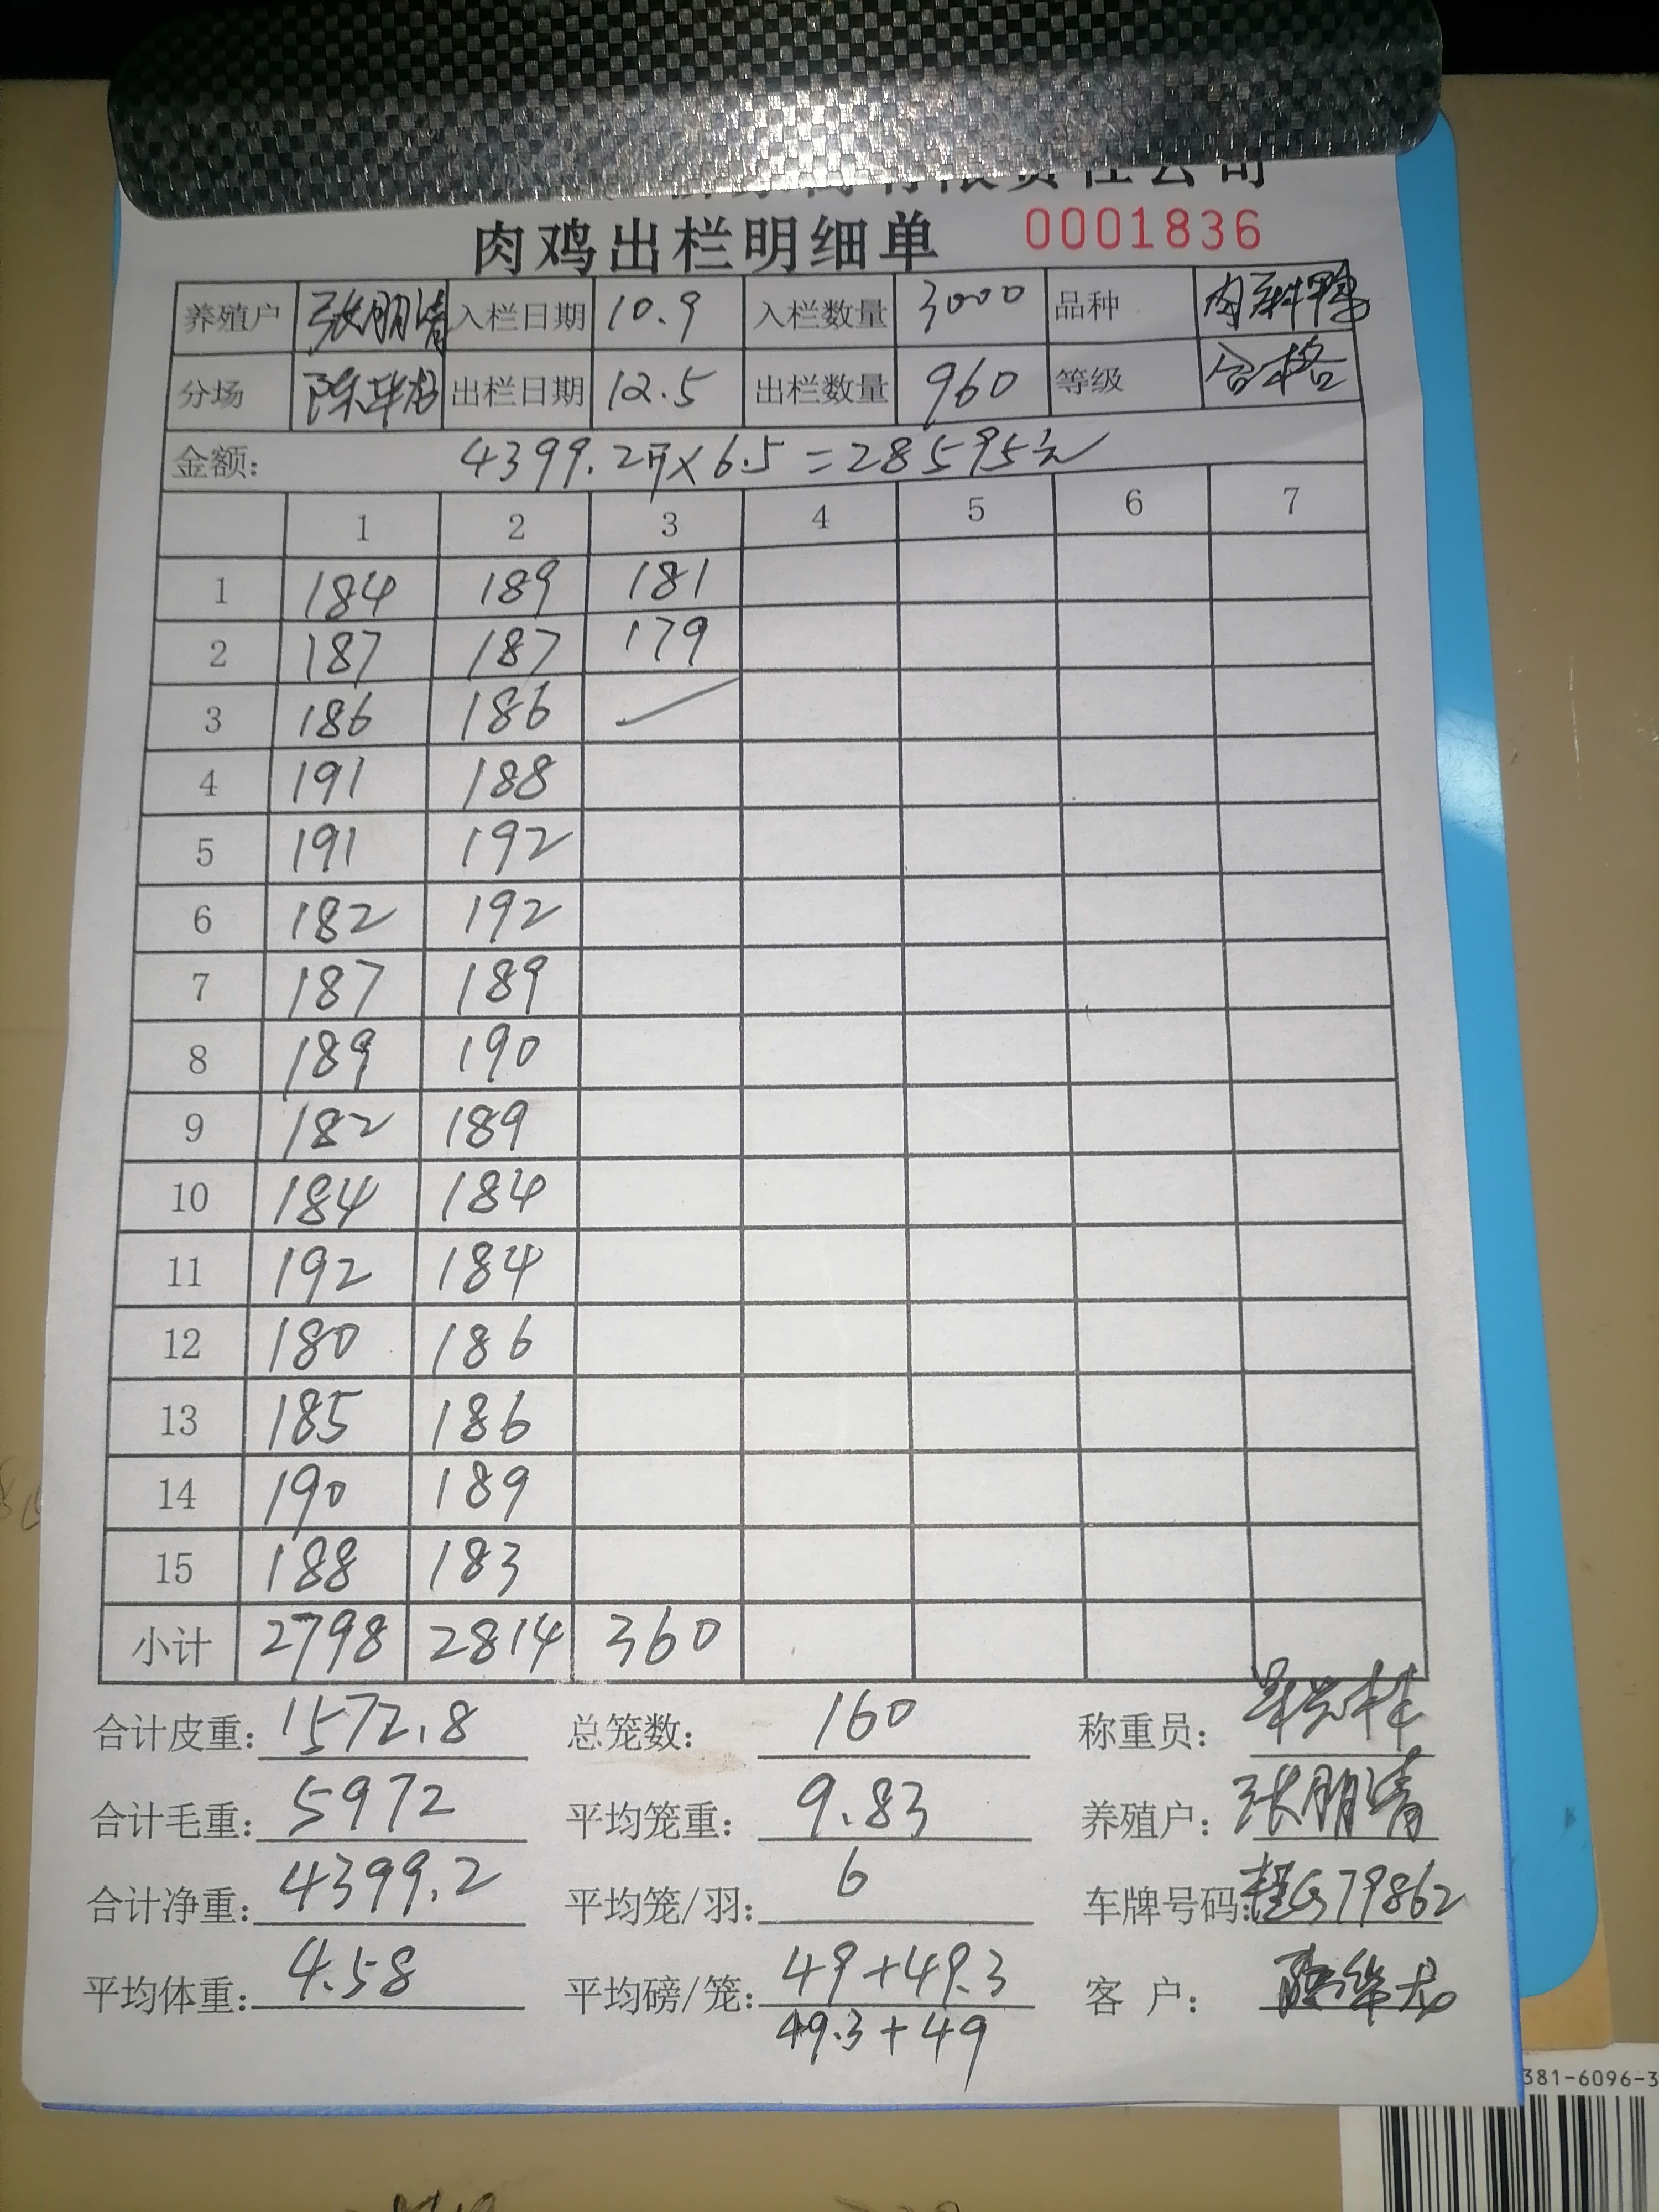 有限责任公司
肉鸡出栏明细单 0001836
养殖户 张朋清 入栏日期 10.9 入栏数量 3000 品种
分场 出栏日期 12.5 出栏数量 960 等级 合格
金额: 4399.2斤×6.5=28595元
1 2 3 4 5 6 7
1 184 189 181
2 187 187 179
3 186 186
4 191 188
5 191 192
6 182 192
7 187 189
8 189 190
9 182 189
10 184 184
11 192 184
12 180 186
13 185 186
14 190 189
15 188 183
小计 2798 2814 360
合计皮重: 1572.8 总笼数: 160 称重员:
合计毛重: 5972 平均笼重: 9.83 养殖户: 张朋清
合计净重: 4399.2 平均笼/羽: 6 车牌号码: G79862
平均体重: 4.58 平均磅/笼: 49+49.3 客户:
49.3+49
381-6096-3